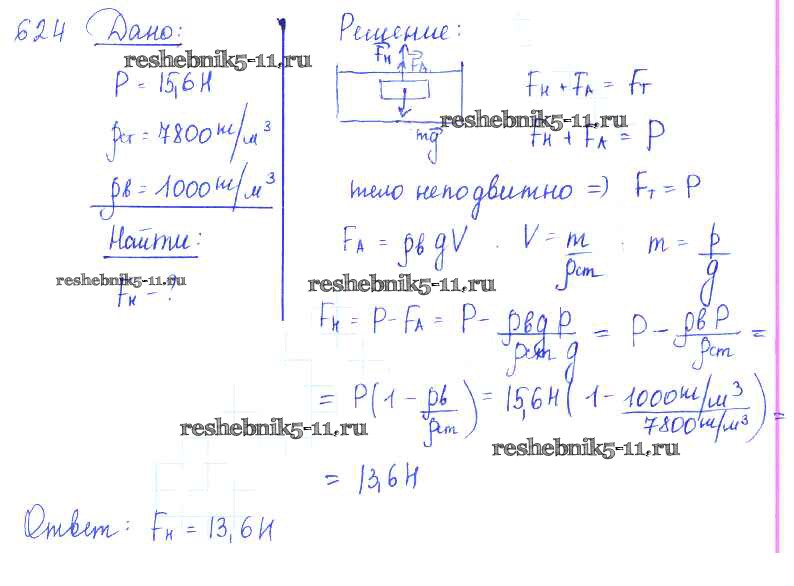 624 Дано:
reshebnik5-11.ru
P = 15,6 Н
ρст = 7800 кг/м³
ρв = 1000 кг/м³
Найти:
reshebnik5-11.ru
Fн - ?
Решение:
Fн
FA
mg
Fн + FA = Fт
reshebnik5-11.ru
Fн + FA = P
тело неподвижно => Fт = P
FA = ρв g V . V = m/ρст ; m = P/g
reshebnik5-11.ru
Fн = P - FA = P - ρв g P/ρст g = P - ρв P/ρст =
= P(1 - ρв/ρст) = 15,6 Н (1 - 1000 кг/м³/7800 кг/м³) =
reshebnik5-11.ru
reshebnik5-11.ru
= 13,6 Н
Ответ: Fн = 13,6 Н